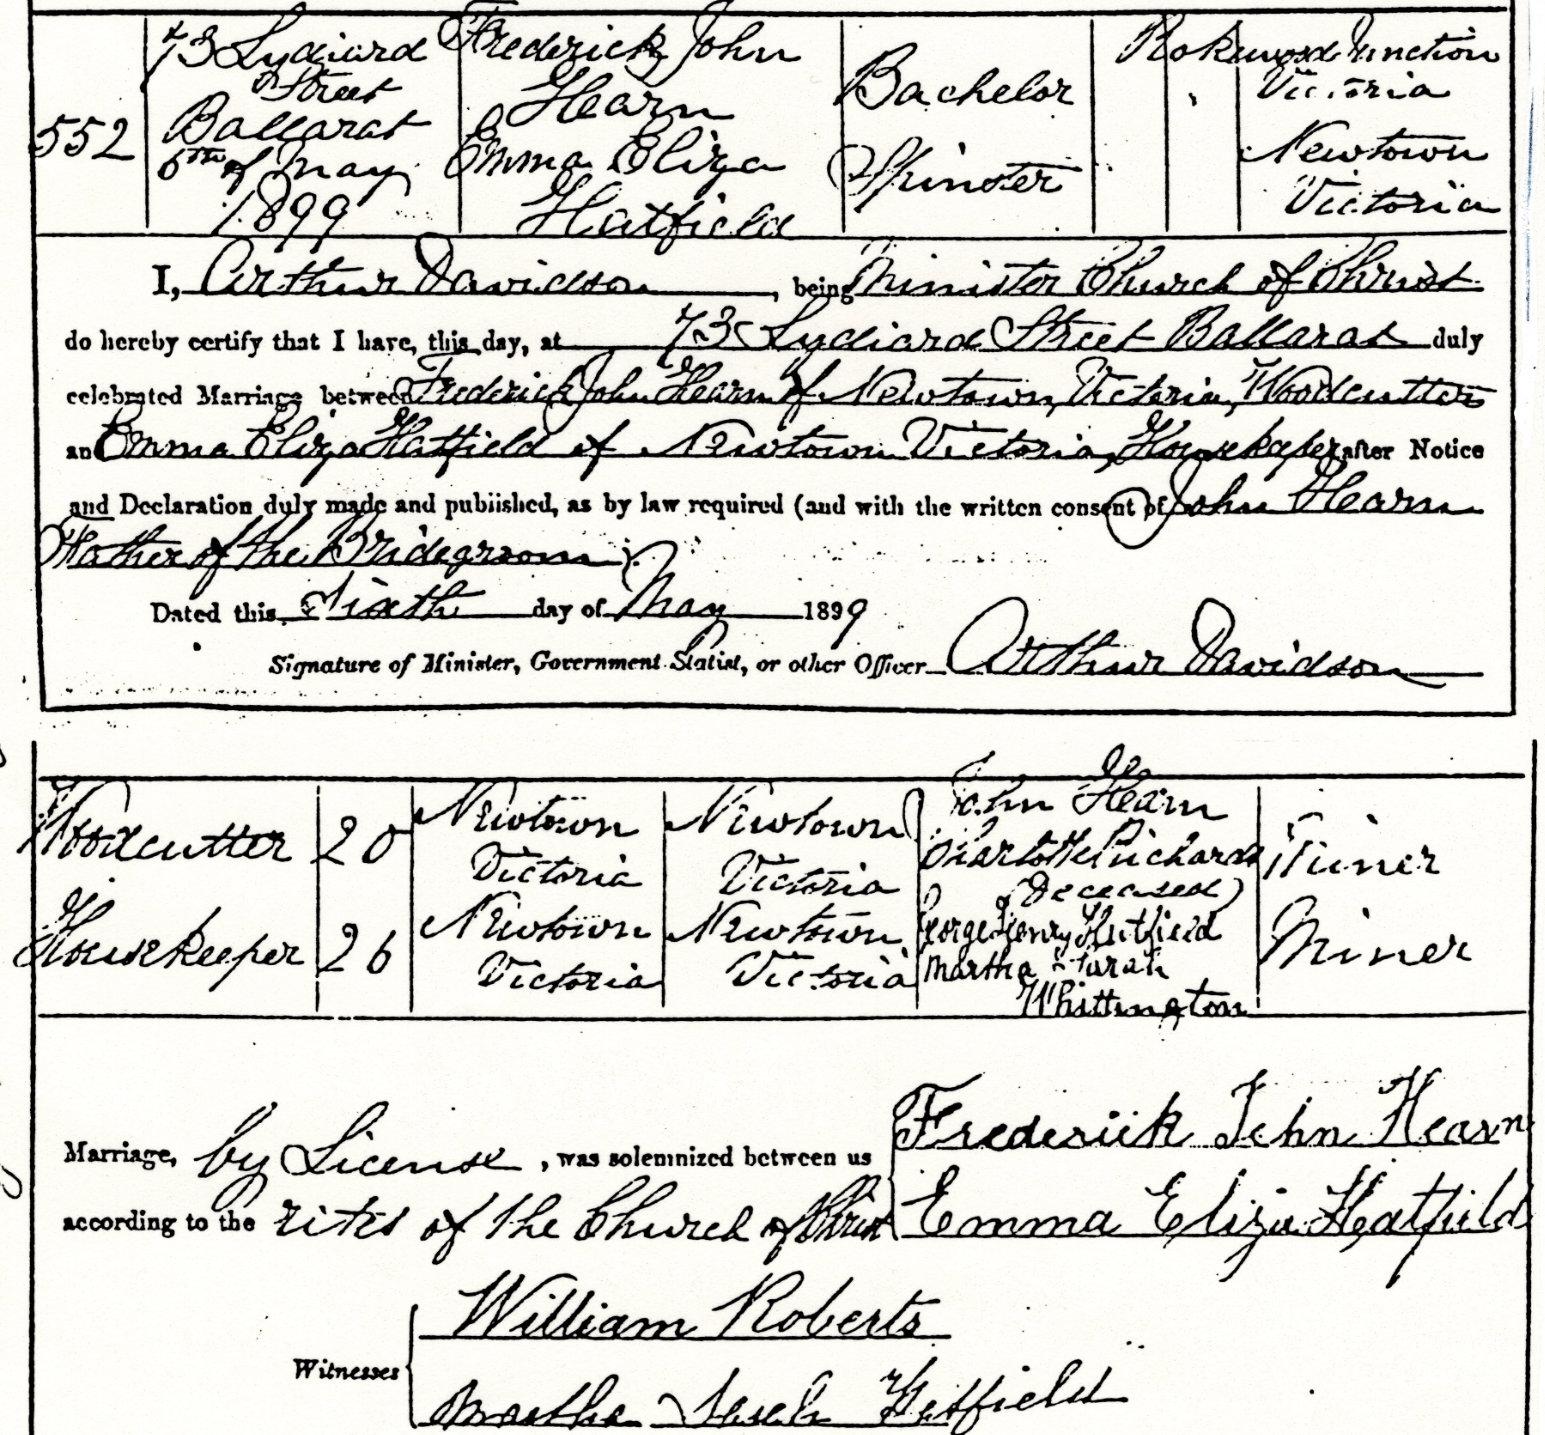 552
73 Lydiard
Street
Ballarat
6th of May
1899
Frederick John
Hearn
Emma Eliza
Hatfield
Bachelor
Spinster
Rokewood Junction
Victoria
Newtown
Victoria
I, Arthur Davidson, being Minister Church of Christ
do hereby certify that I have, this day, at 73 Lydiard Street Ballarat duly
celebrated Marriage between Frederick John Hearn of Newtown, Victoria, Woodcutter
and Emma Eliza Hatfield of Newtown Victoria, Housekeeper after Notice
and Declaration duly made and published, as by law required (and with the written consent of John Hearn
Father of the Bridegroom).
Dated this Sixth day of May 1899
Signature of Minister, Government Statist, or other Officer Arthur Davidson
Woodcutter
Housekeeper
20
26
Newtown
Victoria
Newtown
Victoria
Newtown
Victoria
Newtown
Victoria
John Hearn
Charlotte Richards
(Deceased)
George Henry Hatfield
Martha Sarah
Whittington
Miner
Miner
Marriage, by License, was solemnized between us
according to the rites of the Church of Christ
Frederick John Hearn
Emma Eliza Hatfield
Witnesses
William Roberts
Martha Sarah Hatfield